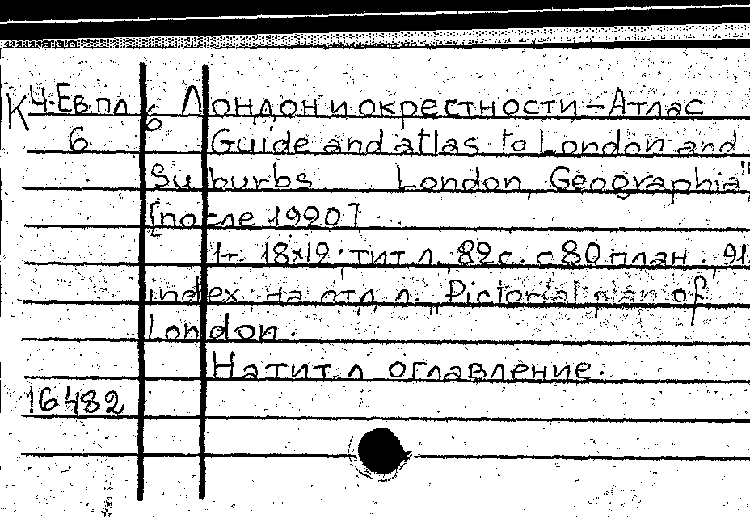 К Ч.Евпл б Лондон и окрестности – Атлас
6 Guide and atlas to London and
Suburbs London, Geographia"
[после 1920]
1т. 18х12. тит л. 82с. с 80 план. 91
index. на отд л. „Pictorial plan of
London.
На тит л оглавление.
16482